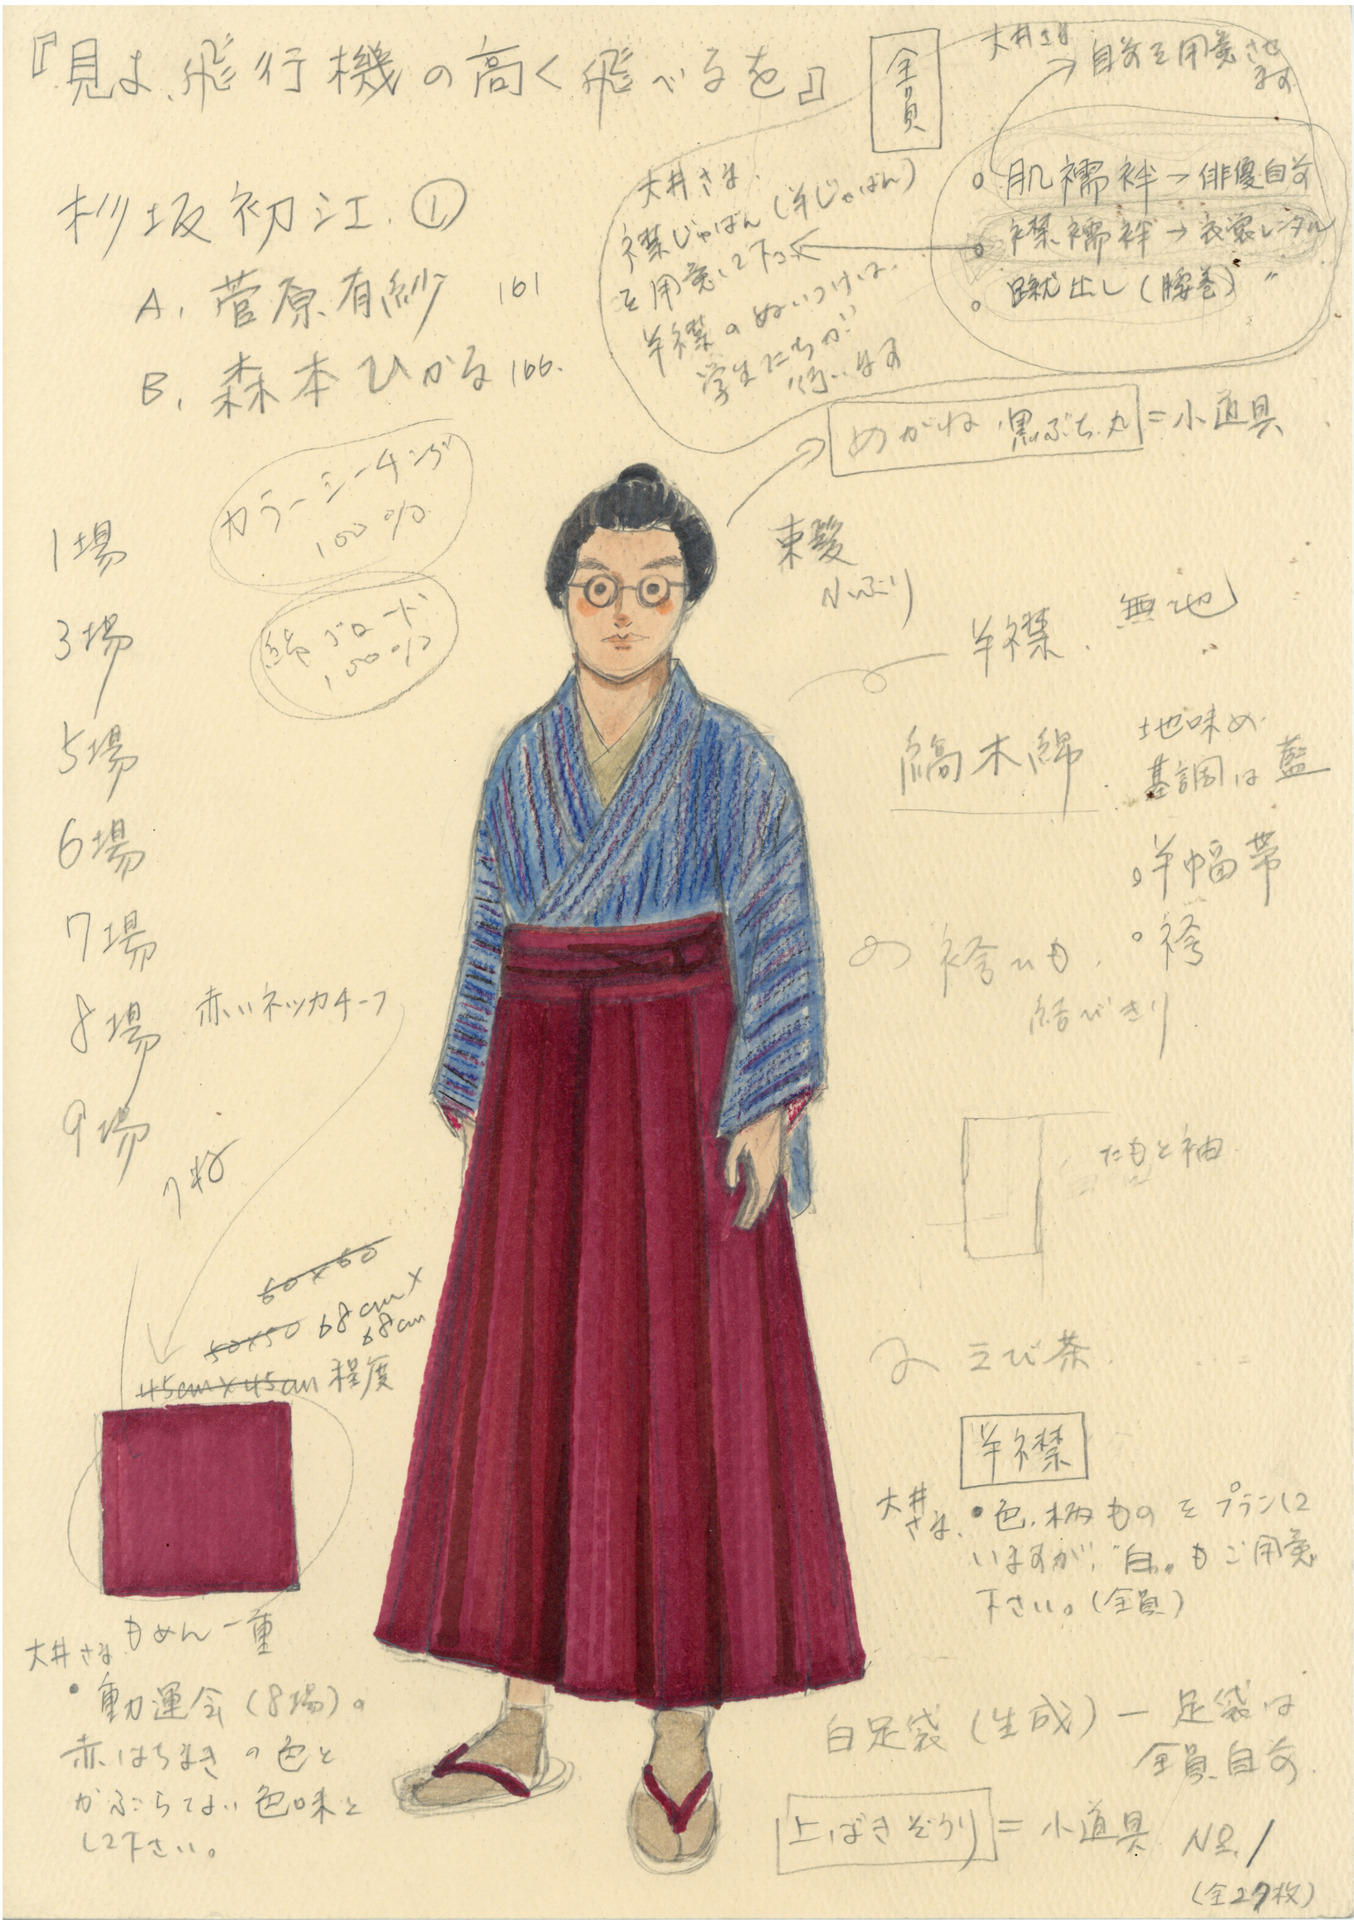 『見よ、飛行機の高く飛べるを』
全員
大井さま
自前を用意させ
ます
杉坂初江 ①
A. 菅原有紗 161
B. 森本ひかる 166.
大井さま、
襟じゅばん(半じゅばん)
を用意して下さい
半襟のぬいつけは、
学生たちが
行います
肌襦袢→俳優自前
襟襦袢→衣裳レンタル
蹴出し(腰巻) 〃
めがね 黒ぶち 丸 = 小道具
カラーシーチング
100%
綿ブロード
100%
束髪
1場
3場
5場
6場
7場
8場
9場
半襟、無地
〃
縞木綿
地味め
基調は藍
半幅帯
袴
袴ひも、
結びきり
赤いネッカチーフ
たもと袖
60×60
50×50 68cm×
68cm
45cm×45cm 程度
えび茶
半襟
大井
さま、
・色、柄ものをプランして
いますが、"白"もご用意
下さい。(全員)
もめん一重
大井さま
・運動会(8場)の
赤はちまきの色と
かぶらない色味と
して下さい。
白足袋(生成)ー足袋は
全員自前
上ばきぞうり = 小道具
No.1
(全27枚)